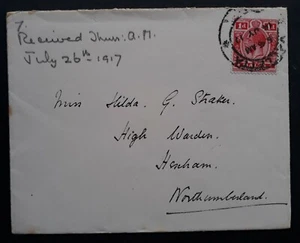 7.
Received Thurs: A.M.
July 26th 1917
1d 1d
Miss Hilda. G. Straker.
High Warden.
Henham.
Northumberland.